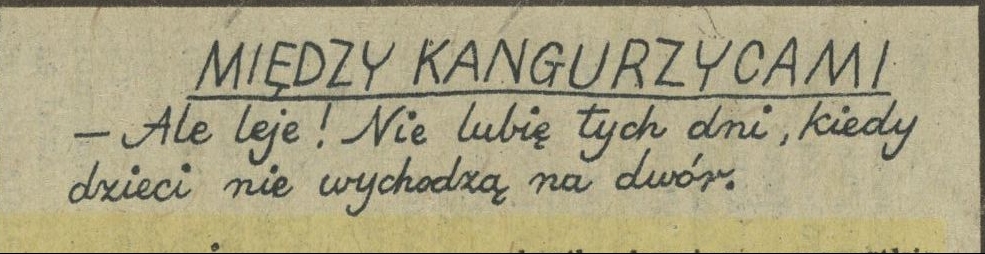 MIĘDZY KANGURZYCAMI
— Ale leje! Nie lubię tych dni, kiedy
dzieci nie wychodzą na dwór.